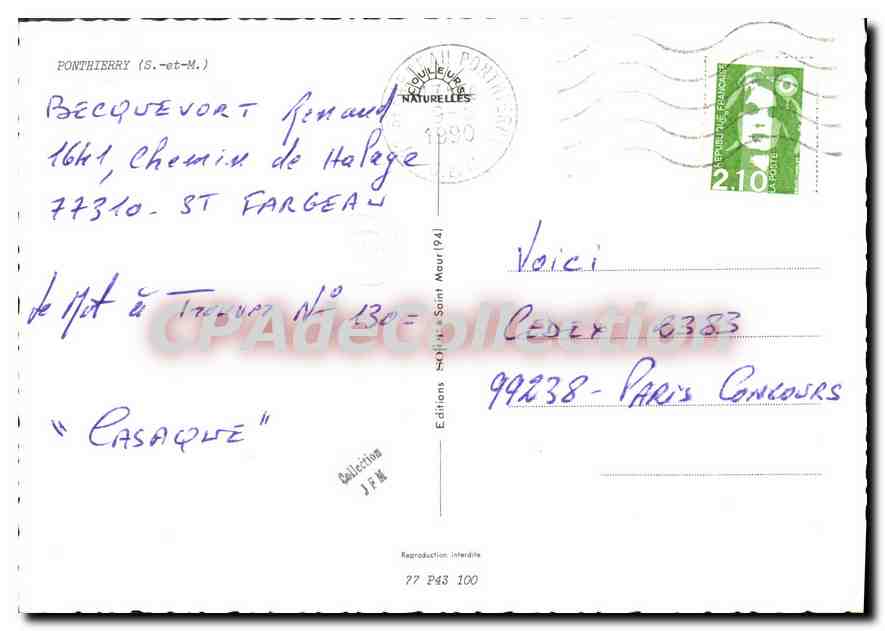 PONTHIERRY (S.-et-M.)
BECQUEVORT Renaud
1641, Chemin de Halage
77310 - ST FARGEAU
le Mot à Trouver N° 130 =
"CASAQUE"
COULEURS
NATURELLES
1990
REPUBLIQUE FRANÇAISE
2,10
LA POSTE
Voici
CEDEX 6383
99238 - PARIS CONCOURS
Editions à Saint Maur (94)
CPAdeCollection
Collection
J F M
Reproduction interdite
77 P43 100